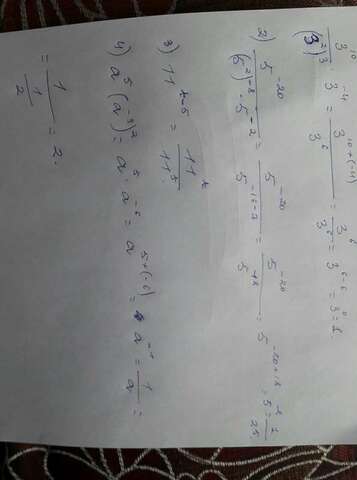 3¹⁰ · 3⁻⁴ / (3²)³ = 3¹⁰⁺⁽⁻⁴⁾ / 3⁶ = 3⁶ / 3⁶ = 3⁶⁻⁶ = 3⁰ = 1.
2) 5⁻²⁰ / (5²)⁻⁸ · 5⁻² = 5⁻²⁰ / 5⁻¹⁶⁻² = 5⁻²⁰ / 5⁻¹⁸ = 5⁻²⁰⁺¹⁸ = 5⁻² = 1/25.
3) 11ˣ⁻⁵ = 11ˣ / 11⁵
4) a⁵(a⁻³)² = a⁵ · a⁻⁶ = a⁵⁺⁽⁻⁶⁾ = a⁻¹ = 1/a =
= 1 / (1/2) = 2.